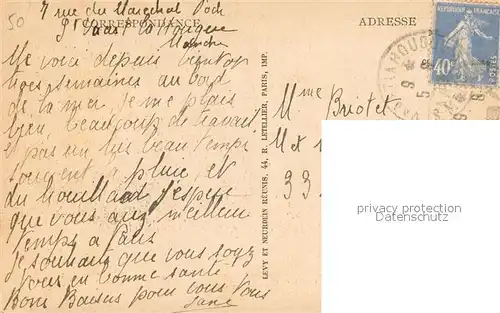 50
7 rue du Marechal Foch
St Vaast la Hougue
Manche
CORRESPONDANCE
ADRESSE
Me voici depuis bientot
trois semaines au bord
de la mer, je me plais
bien, beaucoup de travail
et pas un tres beau temps
souvent la pluie et
du brouillard j'espere
que vous avez meilleur
temps a Paris
Je souhaite que vous soyez
tous en bonne santé
Bons Baisers pour vous tous
LEVY ET NEURDEIN RÉUNIS, 44, R. LETELLIER, PARIS, IMP.
RÉPUBLIQUE FRANÇAISE
40c
POSTES
Mme Briotet
33
privacy protection
Datenschutz